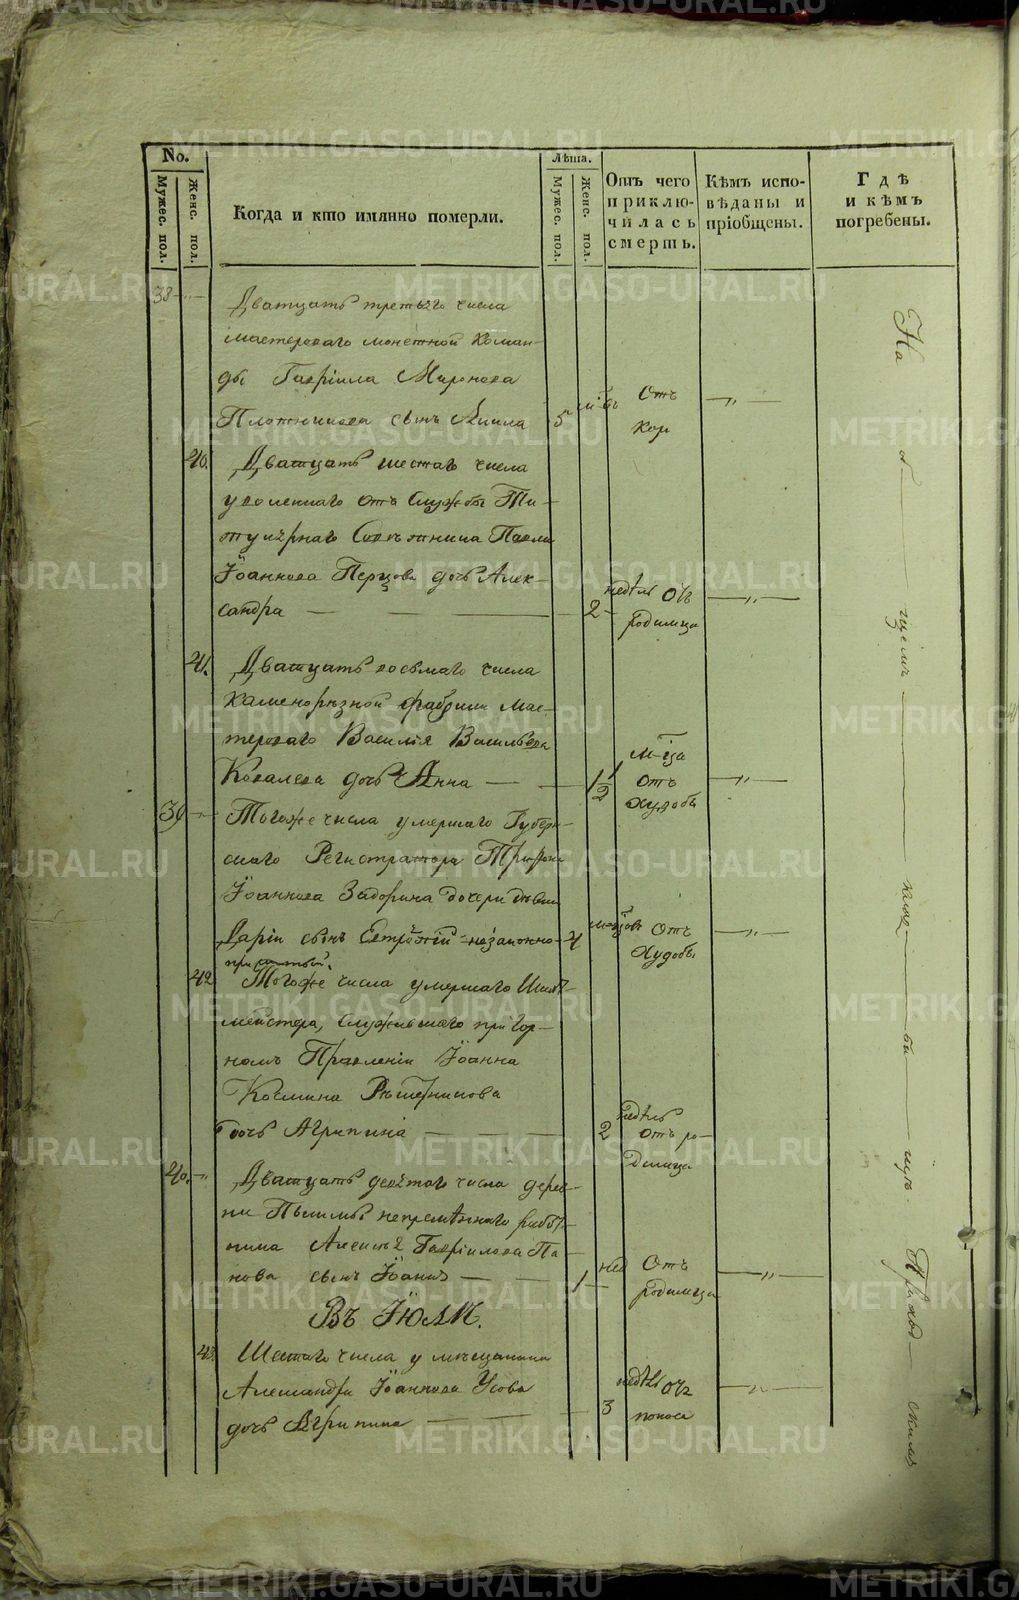 No.
Мужес. пол.
Женс. пол.
Когда и кто имянно померли.
Лѣта.
Мужес. пол.
Женс. пол.
Отъ чего
приклю-
чилась
смерть.
Кѣмъ испо-
вѣданы и
пріобщены.
Гдѣ
и кѣмъ
погребены.
38
Дватцать третьяго числа
мастероваго монетной коман-
ды Гавріила Миронова
Плотникова сынъ
5
Отъ
кор
40.
Дватцать шестаго числа
уволеннаго отъ службы Ти-
тулярнаго Совѣтника Павла
Іоаннова Перцова дочь Алек-
сандра
2
недѣль отъ
родимца
41.
Дватцать восьмаго числа
каменорѣзной фабрики мас-
тероваго Василія Васильева
Ковалева дочь Анна
1 1/2
м-ца
отъ
худобы
39
Тогоже числа умершаго Губерн-
скаго Регистратора Трифона
Іоаннова Задорина дочери дѣвки
Даріи сынъ Евтропій незаконно-
прижитый.
4
отъ
худобы
42
Тогоже числа умершаго Шихт-
мейстера, служившаго при Гор-
номъ Правленіи Іоанна
Космина Рѣшетникова
дочь Агрипина
2
недѣль
отъ ро-
димца
40.
Дватцать девятого числа дерев-
ни непремѣннаго работ-
ника Алексѣя Гавріилова Па-
нова сынъ Іоаннъ
1
нед
Отъ
родимца
Въ Іюлѣ.
43.
Шестаго числа у мѣщанина
Александра Іоаннова Усова
дочь Агрипина
3
недѣль отъ
поноса
На
об
щемъ
клад
би
щѣ
Приход
скимъ
METRIKI.GASO-URAL.RU